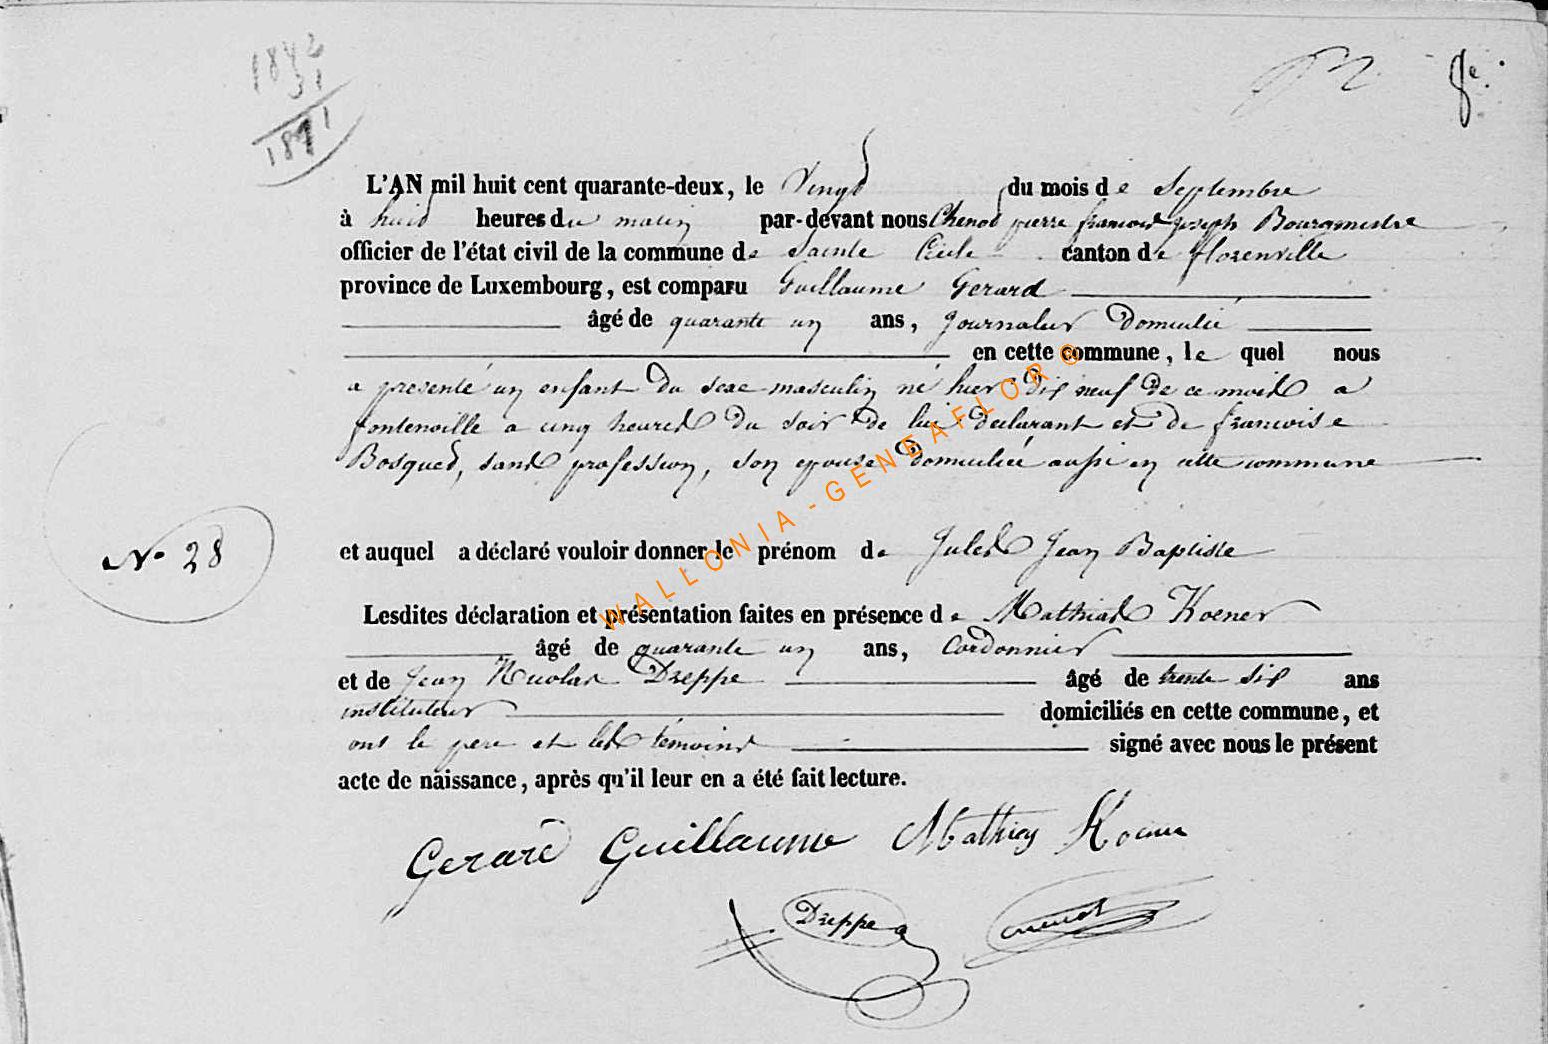 1842
31
1871
8e.
L'AN mil huit cent quarante-deux, le Vingt du mois de Septembre
à huit heures du matin par-devant nous Chenot pierre francois joseph Bourgmestre
officier de l'état civil de la commune de Sainte Cécile canton de florenville
province de Luxembourg, est comparu Guillaume Gerard
âgé de quarante un ans, journalier Domicilié
en cette commune, le quel nous
a presenté un enfant du sexe masculin né hier dix neuf de ce mois a
fontenoille a cinq heures du soir de lui declarant et de francoise
Bosquet, sans profession, son epouse domiciliée aussi en cette commune
N° 28
et auquel a déclaré vouloir donner le prénom de Jules Jean Baptiste
Lesdites déclaration et présentation faites en présence de Mathias Koener
âgé de quarante un ans, Cordonnier
et de Jean Nicolas Dreppe âgé de trente six ans
instituteur domiciliés en cette commune, et
ont le pere et les témoins signé avec nous le présent
acte de naissance, après qu'il leur en a été fait lecture.
Gerard Guillaume Mathias Koener
Dreppe Chenot
WALLONIA-GENEAFLOR©